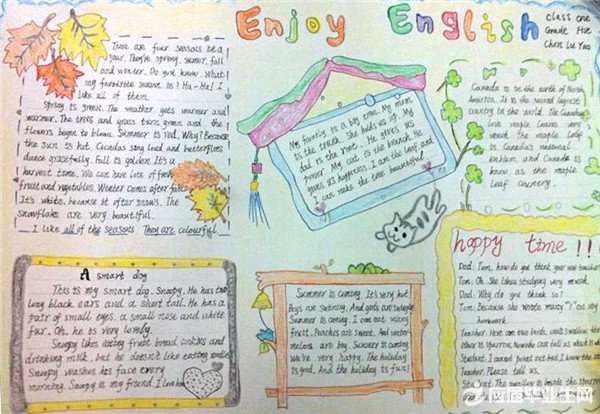 Enjoy English
Class one
Grade Five
Chen Lu Yao
There are four seasons in a
year. They're spring, summer, fall
and winter. Do you know What's
my favourite season is? Ha-Ha! I
like all of them.
Spring is green. The weather gets warmer and
warmer. The trees and grass turns green and the
flowers begin to bloom. Summer is red. Why? Because
the sun is hot. Cicadas sing loud and butterflies
dance gracefully. Fall is golden. It's a
harvest time. We can have lots of fresh
fruit and vegetables. Winter comes after fall.
It's white, because it often snows. The
snowflake are very beautiful.
I like all of the seasons. They are colourful.
My family is a big tree. My mum
is the trunk. She holds us up. My
dad is the root. He gives us
power. My cat is the branch. He
gives us happiness. I am the leaf and
I can make the tree beautiful
Canada is in the north of North
America. It is the second largest
country in the world. The
maple leaf
is Canada's national
emblem and Canada is
know as the maple
leaf country.
A smart dog
This is my smart dog, Snoopy. He has two
long black ears and a short tail. He has a
pair of small eyes, a small nose and white
fur. Oh, he is very lovely.
Snoopy likes eating fruit bread, snacks and
drinking milk, but he doesn't like eating
Snoopy washes his face every
morning. Snoopy is my friend. I love him
Summer is coming. It's very hot.
Boys run swimming. And girls eat
Summer is coming. I can eat many
fruit. Peaches are sweet. And water-
melons are big. Summer is coming
We're very happy. The holiday
is good. And the holiday is fun!
happy time!!!
Dad: Tom, how do you think your new teacher?
Tom: Oh. She likes studying very much.
Dad: Why do you think so?
Tom: Because she wrote many "X" on my
homework.
Teacher: Here are two birds, one's swallow the
other is sparrow. Now who can tell us which is which
Student: I cannot point out but I know the
Teacher: Please tell us.
Student: The swallow is beside the sparrow